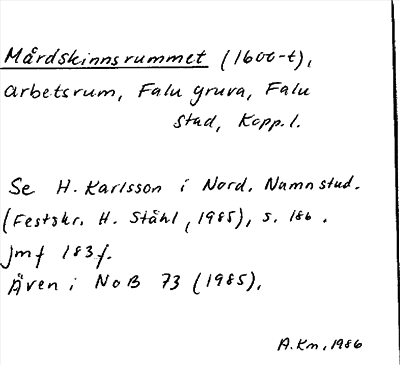 Mårdskinnsrummet (1600-t),
arbetsrum, Falu gruva, Falu
stad, Kopp.l.
Se H. Karlsson i Nord. Namnstud.
(Festskr. H. Ståhl, 1985), s. 186.
jmf 183f.
Även i NoB 73 (1985).
A.Km, 1986